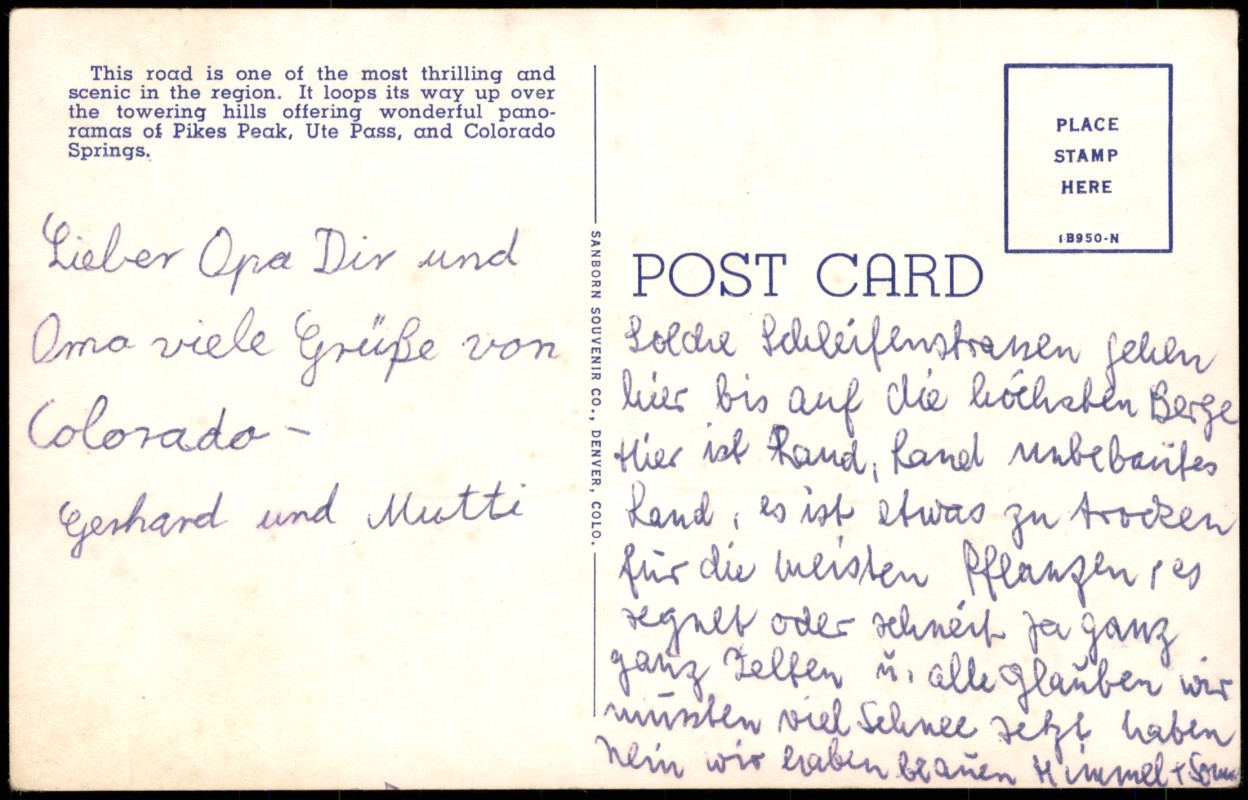 This road is one of the most thrilling and
scenic in the region. It loops its way up over
the towering hills offering wonderful pano-
ramas of Pikes Peak, Ute Pass, and Colorado
Springs.
Lieber Opa Dir und
Oma viele Grüße von
Colorado -
Gerhard und Mutti
SANBORN SOUVENIR CO., DENVER, COLO.
PLACE
STAMP
HERE
1B950-N
POST CARD
Solche Schleifenstrassen gehen
hier bis auf die höchsten Berge
Hier ist Land, Land unbebautes
Land, es ist etwas zu trocken
für die meisten Pflanzen, es
regnet oder schneit ja ganz
ganz selten u. alle glauben wir
müssten viel Schnee jetzt haben
Nein wir haben blauen Himmel + Sonne